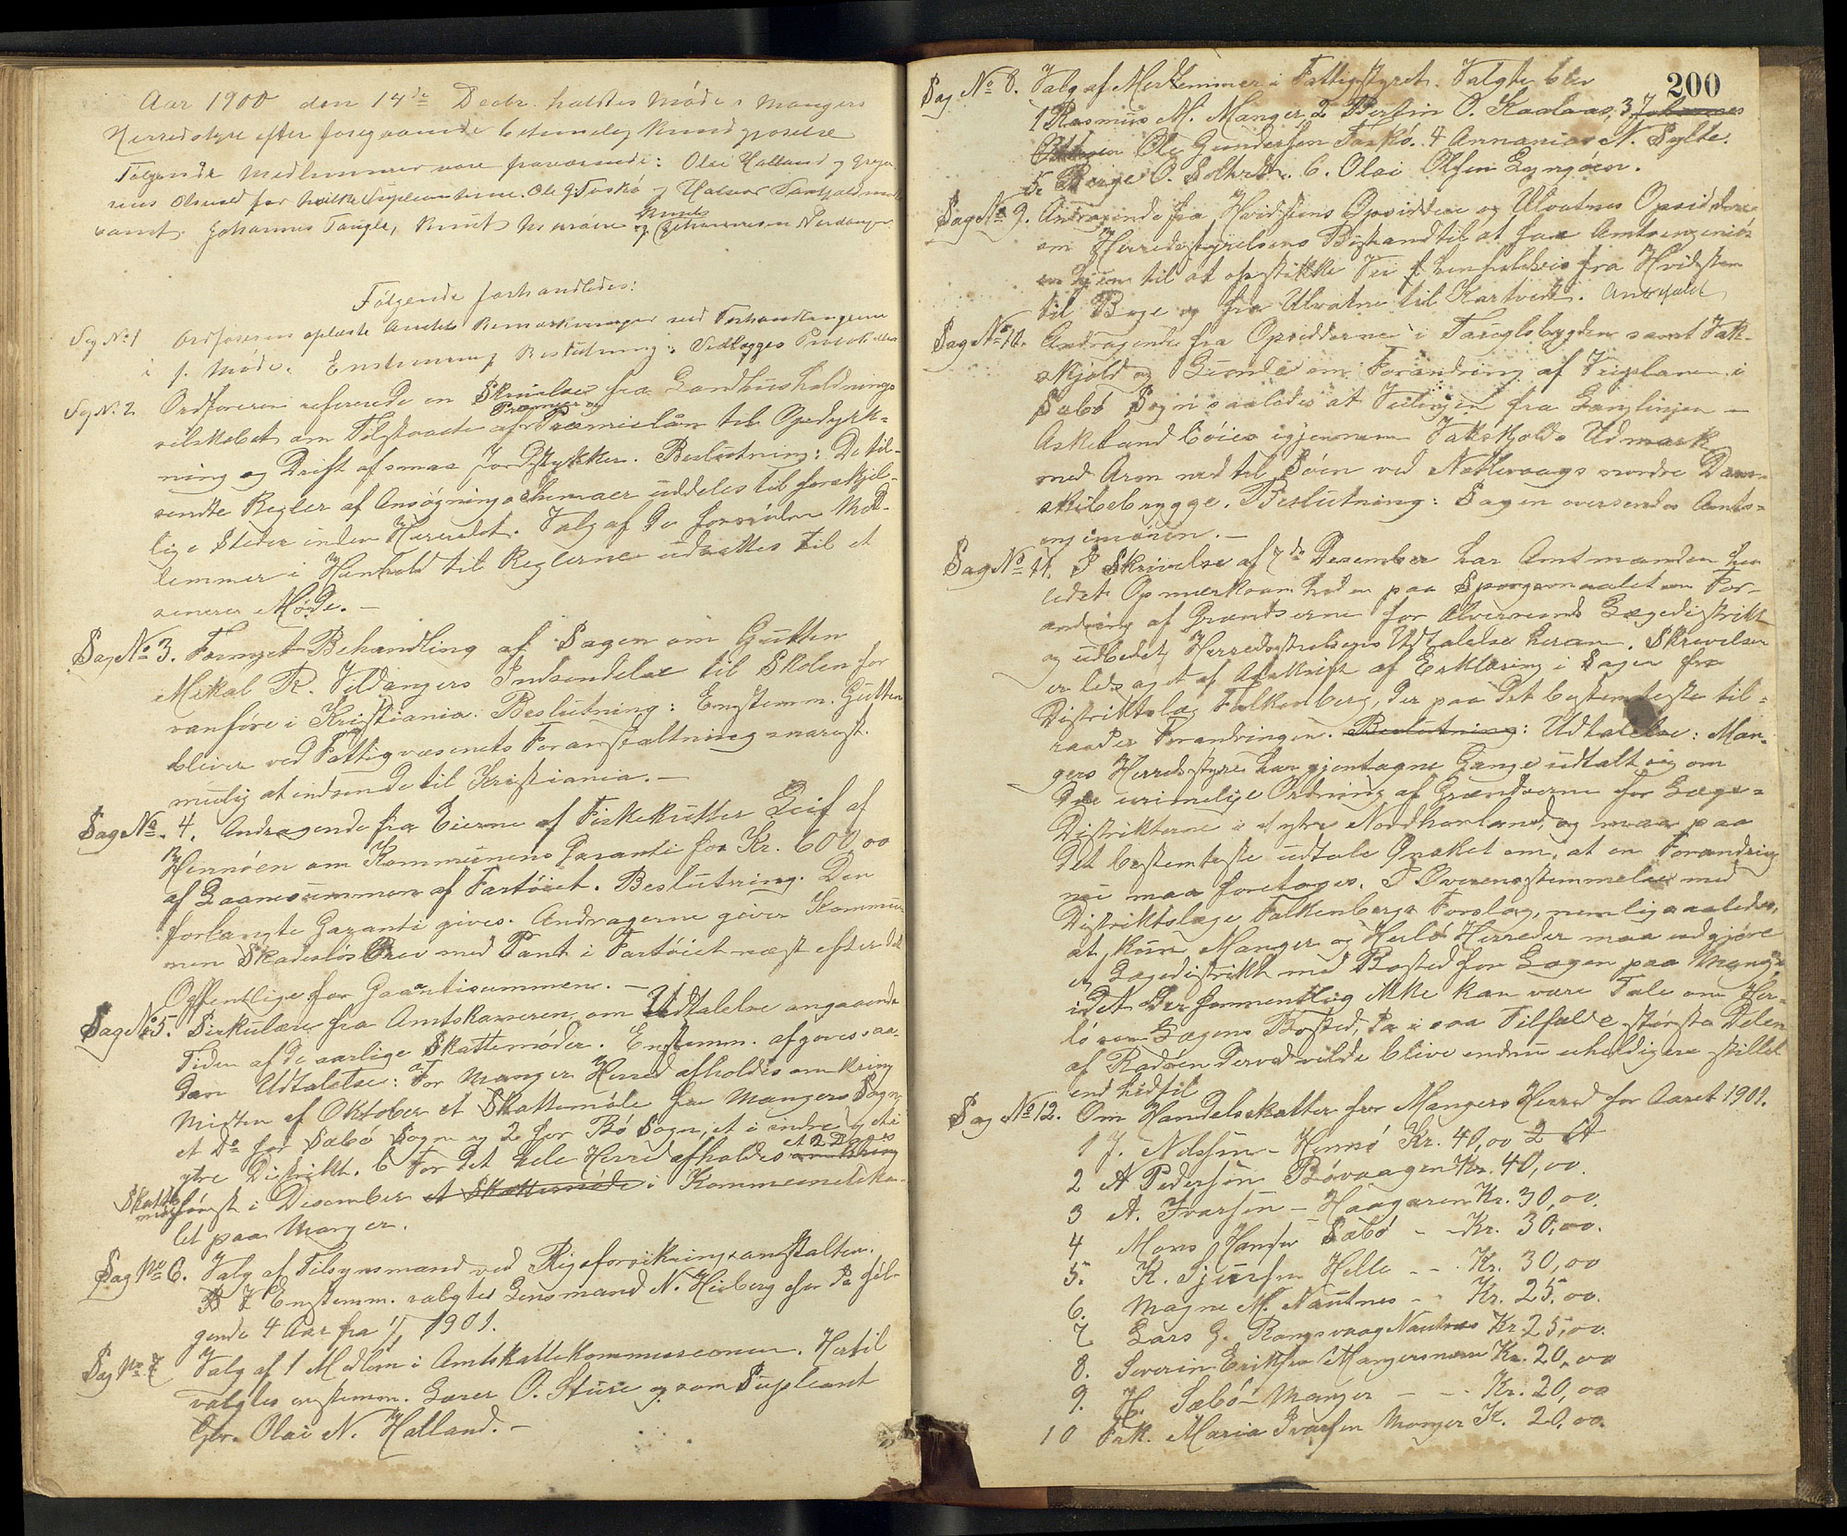 Aar 1900 den 14de Decbr. holdtes Møde i Mangers
Herredstyre efter foregaaende betimelig kundgjørelse
Følgende Medlemmer vare fraværende: Olai Halland og
Olsvold for hvilke Suppleanterne. Ole G. Toskö og Halvor
samt. Johannes Taugle, Knut og Johannesen Nordanger
Knut
Følgende forhandledes:
Sag No 1 Ordføreren oplæste Amtets Bemærkninger ved Forhandlingerne
i f. Møde. Enstemmig Beslutning: Vedlægges Protokollen
Sag No. 2 Ordføreren refererede en Skrivelse fra Landhusholdnings
Præmier og
selskabet om Tilstaaelse af Præmielån til Opdyrk-
ning og Drift af smaa Jordstykker. Beslutning: De til-
sendte Regler af Ansøgningsschemaer uddeles til forskjel-
lige Steder inden Herredet. Valg af de fornødne Med-
lemmer i Henhold til Reglerne udsættes til et
senere Møde. —
Sag No 3. Fornyet Behandling af Sagen om Gutten
Mikal R. Veldangers Indsendelse til Skolen for
vanføre i Kristiania. Beslutning: Enstemm. Gutten
bliver ved Fattigvæsenets Foranstaltning snarest
mulig at indsende til Kristiania. —
Sag No. 4. Andragende fra Eierne af Fiskekutter Leif af
Hennöen om Kommunens Garanti for Kr. 600,00
af Laanesummen af Fartöiet. Beslutning. Den
forlangte Garanti gives. Andragerne giver Kommu-
nen Skadeslösbrev med Pant i Fartöiet næst efter det
Offentlige for Garantisummen. —
Sag No 5. Sirkulære fra Amtskasseren om Udtalelse angaaende
Tiden af de aarlige Skattemøder. Enstemm. afgaves saa-
dan Udtalelse: a For Manger Herred afholdes omkring
Midten af Oktober et Skattemøde for Mangers Sogn,
et Do for Sæbö Sogn og 2 for Bö Sogn, et i indre og et i
ytre Distrikt. b For det hele Herred afholdes omkring
et 2 Dages
Skatte
møde først i Desember et Skattemöde i Kommuneloka-
let paa Manger.
Sag No 6. Valg af Tilsynsmand ved Rigsforsikringsanstalten.
Enstemm. valgtes Lensmand N. Heiberg for de føl-
gende 4 Aar fra 1/1 1901.
Sag No 7 Valg af 1 Medlem i Amtskattekommissionen. Hertil
valgtes enstemm. Lærer O. Sture og som Supleant
Gbr. Olai N. Halland. —
200
Sag No 8. Valg af Medlemmer i Fattigstyret. Valgte blev
1 Rasmus M. Manger, 2 Bertin O. Kaalaas, 3 Johannes
Ole Gundersen Toskö. 4 Annanias N. Sylte.
5. Børge O. Soltvedt. 6. Olai Olsen Lyngöen.
Sag No 9. Andragende fra Hvidstens Opsiddere og Ulvatnes Opsiddere
om Herredsstyrelsens Bistand til at faa Amtsingeniö-
ren hjem til at opstikke Vei henholdsvis fra Hvidsten
til Boge og fra Ulvatne til Kartveit. Anbefalet
Sag No 10. Andragende fra Opsidderne i Tauglebygden samt Jak-
skjold og Grimle om Forandring af Veiplanen i
Sæbö Sogn saaledes at Veilinjen fra Langlinjen —
Askeland böies igjennem Vakskjolds Udmark
med Arm ned til Söen ved Nøttevaags nordre Dam-
skibsbrygge. Beslutning: Sagen oversendes Amts-
ingeniören. —
Sag No 11. I Skrivelse af 7de Desember har Amtmanden hen
ledet Opmærksomheden paa Spørgsmaalet om For-
andring af Grændserne for Alversunds Lægedistrikt
og udbedet Herredsstyrelsens Udtalelse heran. Skrivelsen
er ledsaget af Afskrift af Erklæring i Sagen fra
Distriktslæge Falkenberg, der paa det bestemteste til-
raader Forandringen. Beslutning: Udtalelse: Man-
gers Herredsstyre har gjentagne Gange udtalt sig om
den urimelige Ordning af Grændserne for Læge-
Distrikterne i ytre Nordhordland, og maa paa
det bestemteste udtale Ønsket om, at en Forandring
nu maa foretages. I Overensstemmelse med
Distriktslæge Falkenbergs Forslag, nemlig saaledes,
at kun Manger og Herlö Herreder maa udgjöre
et Lægedistrikt med Bosted for Lægen paa Manger
idet der formentlig ikke kan være Tale om Her-
lö som Lægens Bosted, da i saa Tilfælde största Delen
af Radöen derved vilde blive endnu uheldigere stillet
end hidtil
Sag No 12. Om Handelsskatter for Mangers Herred for Aaret 1901.
1 J. Nilssen — Hennö Kr. 40,00 2 A
2 A Pedersen Bövaagen Kr. 40,00.
3 A. Ivarsen — Haagaren Kr. 30,00.
4 Mons Hansen Sæbö - - Kr. 30,00.
5. K. Sjursen Helle - - Kr. 30,00
6. Magne M. Nautnes - - Kr. 25,00.
7 Lars G. Rongsvaag Nautnes Kr 25,00.
8. Severin Eriksen Mangersnæs Kr. 20,00
9. H. Sæbö — Manger - - Kr. 20,00
10 Frk. Maria Ivarsen Manger Kr. 20,00.